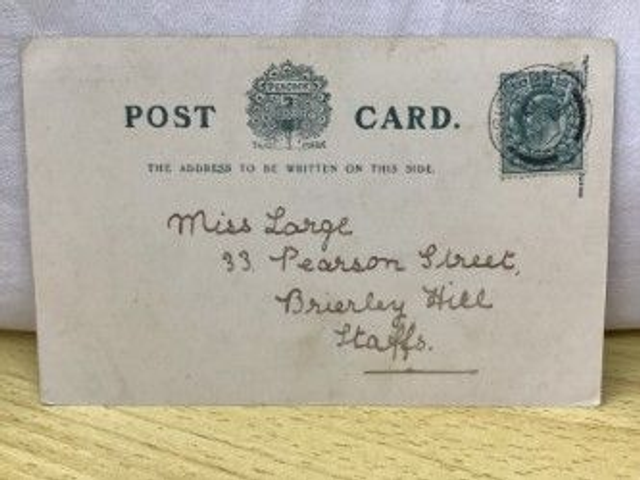 POST CARD.
PEACOCK
TRADE MARK
THE ADDRESS TO BE WRITTEN ON THIS SIDE.
Miss Large
33 Pearson Street,
Brierley Hill
Staffs.